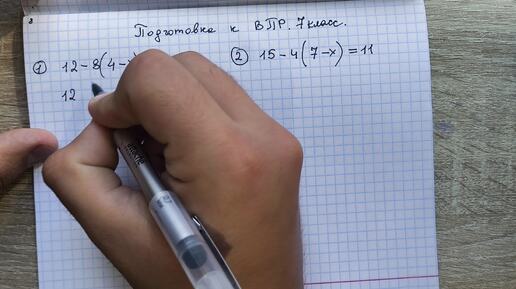 Подготовка к ВПР. 7 класс.
① 12 - 8(4 - ② 15 - 4(7 - x) = 11
12